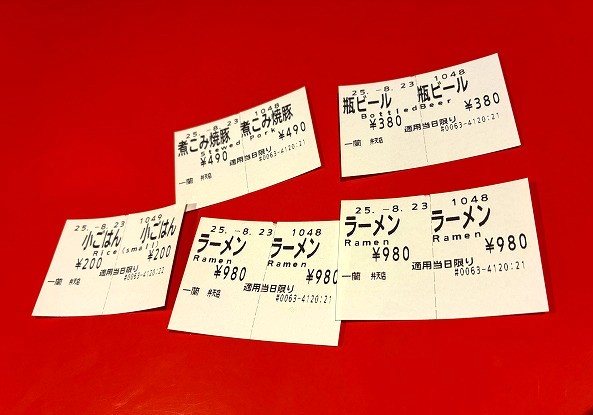 25.-8.23 1048
煮こみ焼豚 煮こみ焼豚
Stewed Pork
¥490 ¥490
適用当日限り
一蘭 #0063-4120:21
25.-8.23 1048
瓶ビール 瓶ビール
Bottled Beer
¥380 ¥380
適用当日限り
一蘭 #0063-4120:21
25.-8.23 1049
小ごはん 小ごはん
Rice (small)
¥200 ¥200
適用当日限り
一蘭 #0063-4120:22
25.-8.23 1048
ラーメン ラーメン
Ramen Ramen
¥980 ¥980
適用当日限り
一蘭 #0063-4120:21
25.-8.23 1048
ラーメン ラーメン
Ramen Ramen
¥980 ¥980
適用当日限り
一蘭 #0063-4120:21